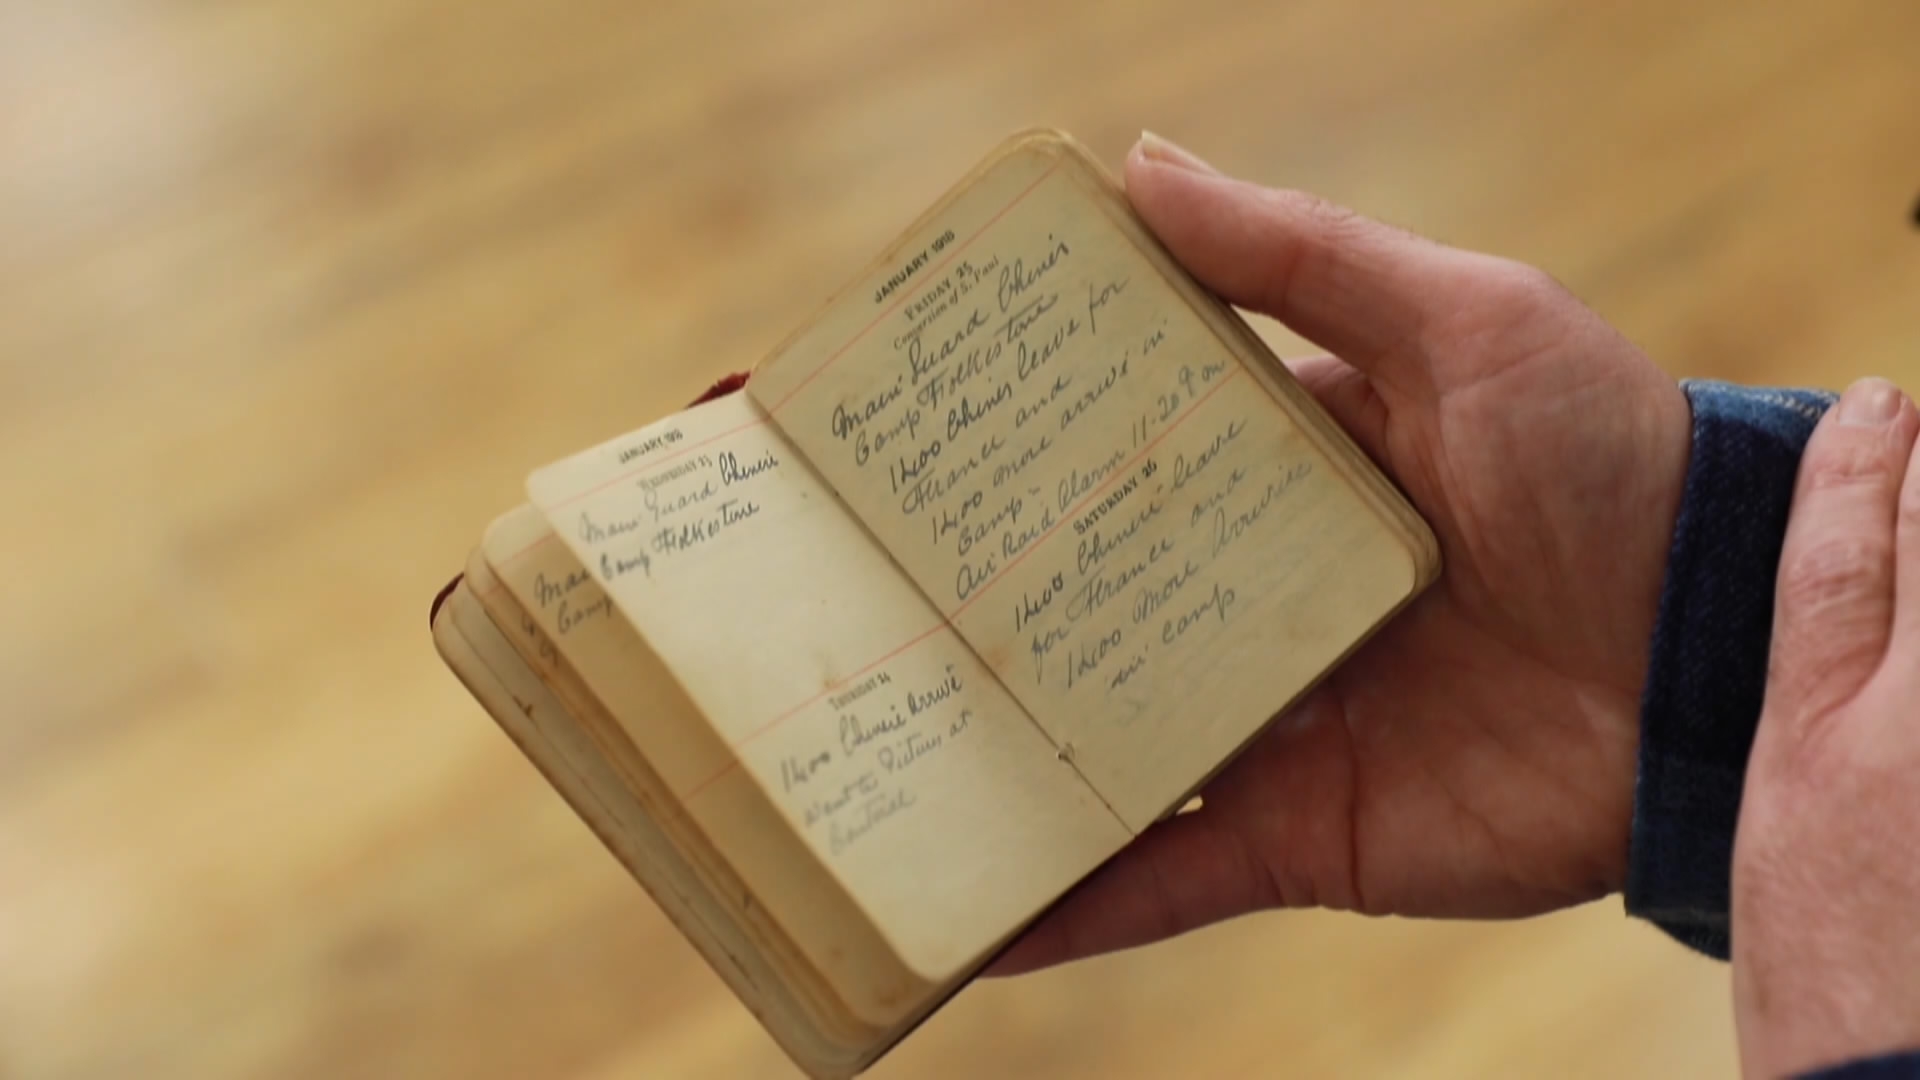 JANUARY 1918
WEDNESDAY 23
Main Guard Chinese
Camp Folkestone
THURSDAY 24
1400 Chinese Arrive
Went to Pictures at
JANUARY 1918
FRIDAY 25
Conversion of S. Paul
Main Guard Chines
Camp Folkestone
1400 Chines leave for
France and
1400 more arrive in
Camp
Air Raid Alarm 11-20 P m
SATURDAY 26
1400 Chinese leave
for France and
1400 More Arrive
in camp
Camp